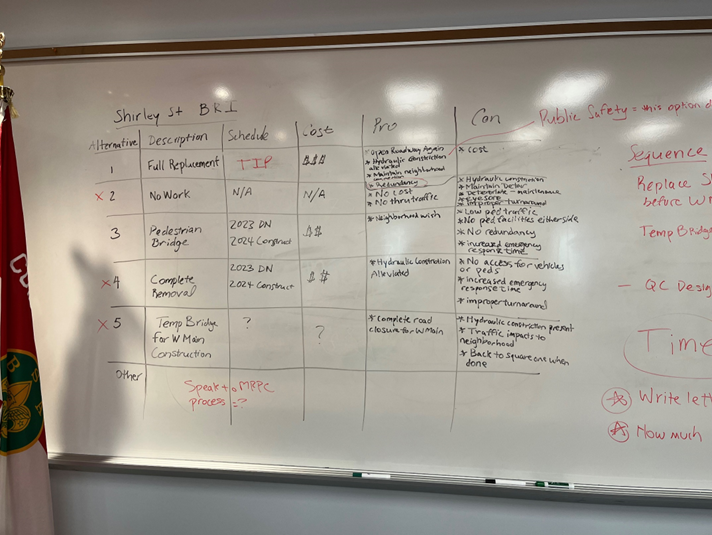 Shirley St BRI
Alternative Description Schedule Cost Pro Con
1 Full Replacement TIP $$$
* Open Roadway Again
* Hydraulic Constriction alleviated
* Maintain neighborhood
* Redundancy
* Cost
x 2 No Work N/A N/A
* No Cost
* No thru traffic
* Hydraulic constriction
* Maintain Detour
* Deteriorate - maintenance
* Eyesore
* improper turnaround
3 Pedestrian
Bridge
2023 DN
2024 Construct
$$
* Neighborhood wish
* Low ped traffic
* No ped facilities either side
* No redundancy
* increased emergency
response time
x 4 Complete
Removal
2023 DN
2024 Construct
$$
* Hydraulic Constriction
Alleviated
* No access for vehicles
or peds
* Increased emergency
response time
* improper turnaround
x 5 Temp Bridge
for W Main
Construction
?
?
* Complete road
closure for W Main
* Hydraulic constriction present
* Traffic impacts to
neighborhood
* Back to square one when
done
Other
Speak to MRPC
process = ?
Public Safety = this option
Sequence
Replace
before W
Temp Bridg
- QC Desig
Time
Write let
How much